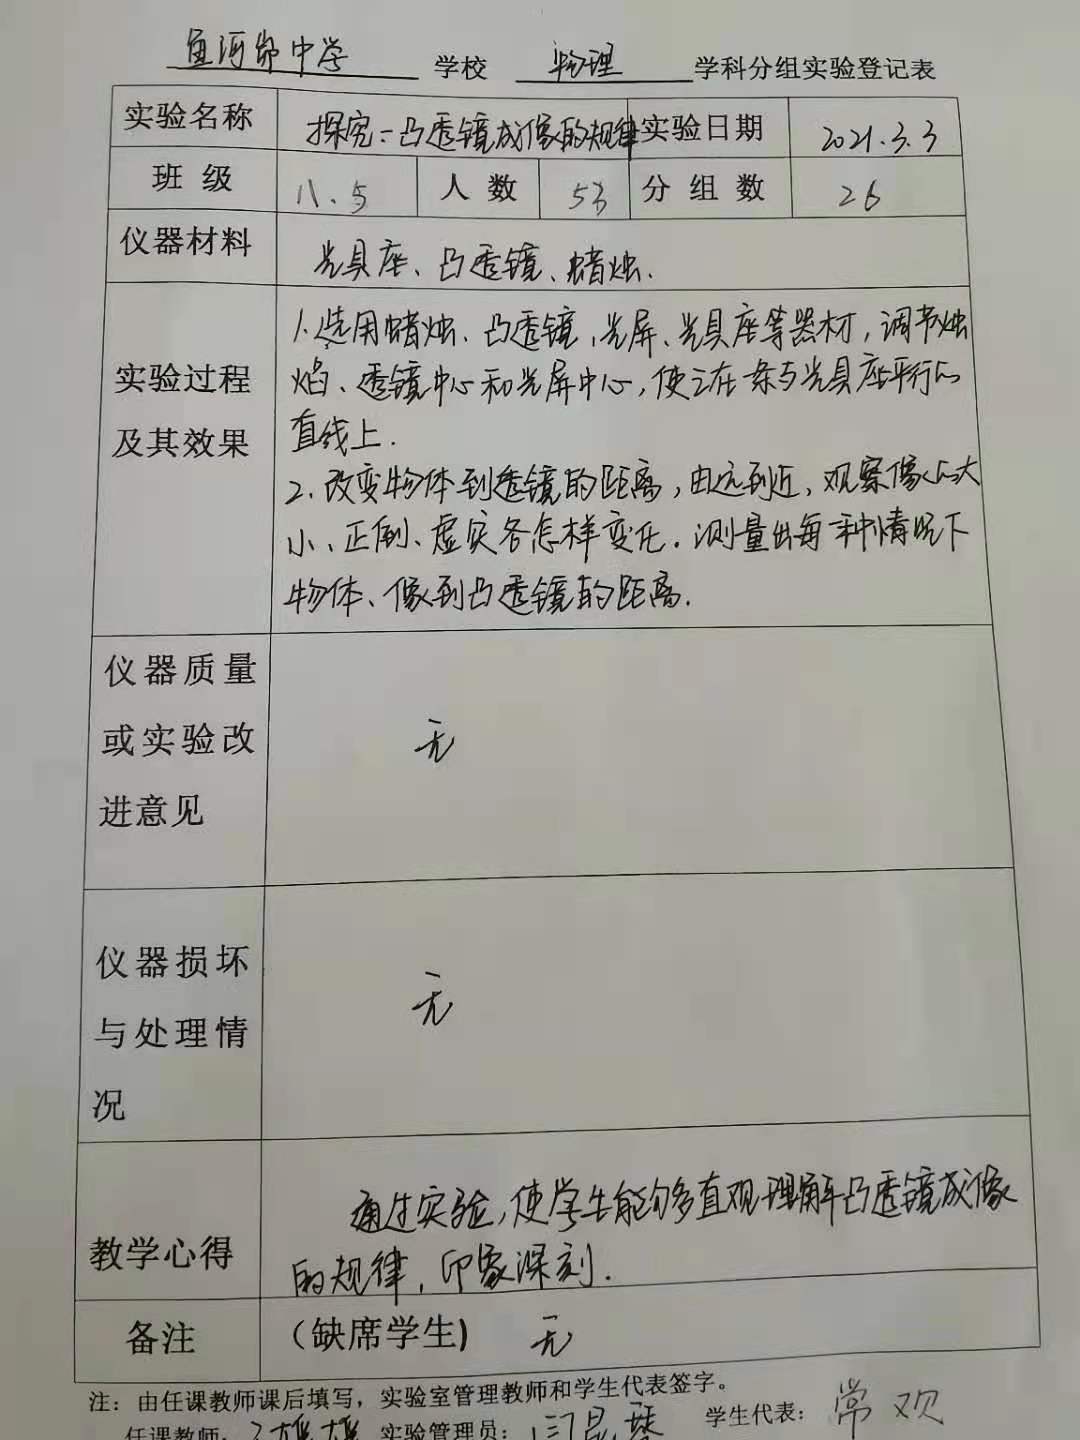 鱼河峁中学 学校 物理 学科分组实验登记表
实验名称 探究:凸透镜成像的规律 实验日期 2021.3.3
班 级 八.5 人 数 53 分 组 数 26
仪器材料 光具座、凸透镜、蜡烛.
1.选用蜡烛、凸透镜,光屏、光具座等器材,调节烛
实验过程 焰、透镜中心和光屏中心,使之在一条与光具座平行的
及其效果 直线上.
2.改变物体到透镜的距离,由远到近,观察像的大
小、正倒、虚实各怎样变化.测量出每一种情况下
物体、像到凸透镜的距离.
仪器质量
或实验改 无
进意见
仪器损坏
与处理情 无
况
通过实验,使学生能够多直观理解凸透镜成像
教学心得 的规律,印象深刻.
备注 (缺席学生) 无
注:由任课教师课后填写,实验室管理教师和学生代表签字。
任课教师: 实验管理员: 学生代表:常欢